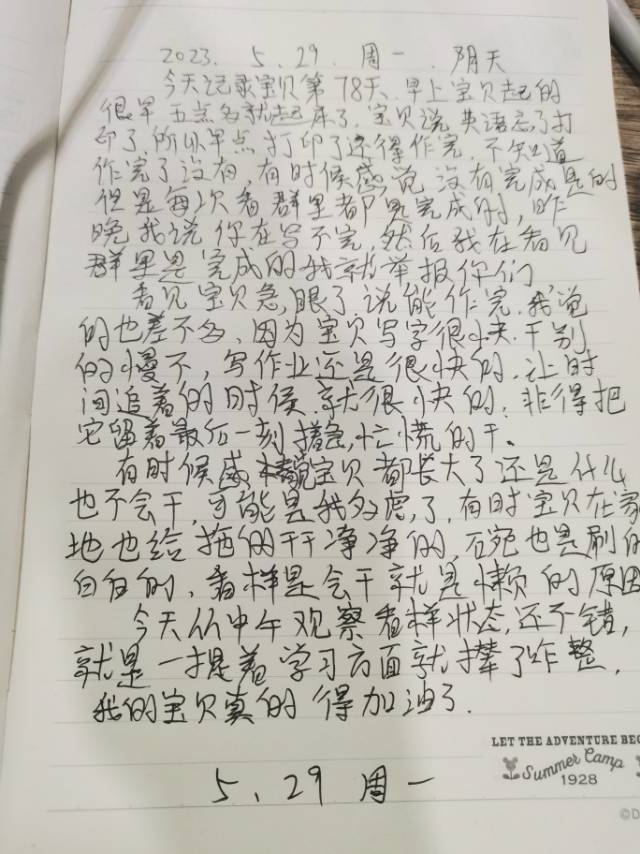 2023. 5. 29. 周一. 阴天
今天记录宝贝第78天、早上宝贝起的
很早五点多就起床了,宝贝说英语忘了打
印了,所以早点打印了还得作完,不知道
作完了没有,有时候感觉没有完成是的
但是每次看群里都是完成的,昨
晚我说你在写不完,然后我在看见
群里是完成的我就举报你们
看见宝贝急,眼了说能作完,我说
的也差不多、因为宝贝写字很快.干别
的慢不,写作业还是很快的.让时
间追着的时候.就很快的.非得把
它留着最后一刻着急,忙慌的干。
有时候感觉宝贝都长大了还是什么
也不会干,可能是我多虑,了,有时宝贝在家
地也给拖的干干净净的,石宛也是刷的
白白的,看样是会干就是懒的原因
今天从中午观察看样状态,还不错,
就是一提着学习方面就撵了咋整,
我的宝贝真的得加油了.
LET THE ADVENTURE BEG
Summer Camp
1928
©D
5、29 周一